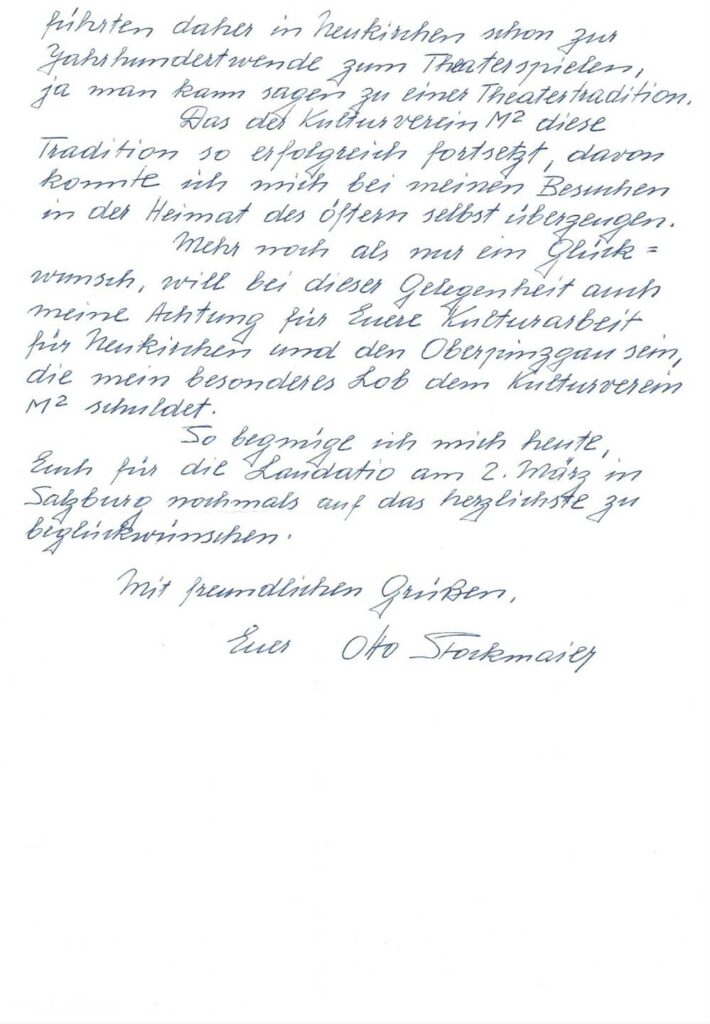 führten daher in Neukirchen schon zur
Jahrhundertwende zum Theaterspielen,
ja man kann sagen zu einer Theatertradition.
Das der Kulturverein M² diese
Tradition so erfolgreich fortsetzt, davon
konnte ich mich bei meinen Besuchen
in der Heimat des öftern selbst überzeugen.
Mehr noch als nur ein Glück=
wunsch, will bei dieser Gelegenheit auch
meine Achtung für Euere Kulturarbeit
für Neukirchen und den Oberpinzgau sein,
die mein besonderes Lob dem Kulturverein
M² schuldet.
So begnüge ich mich heute,
Euch für die Laudatio am 2. März in
Salzburg nochmals auf das herzlichste zu
beglückwünschen.
Mit freundlichen Grüßen,
Euer Otto Stockmaier